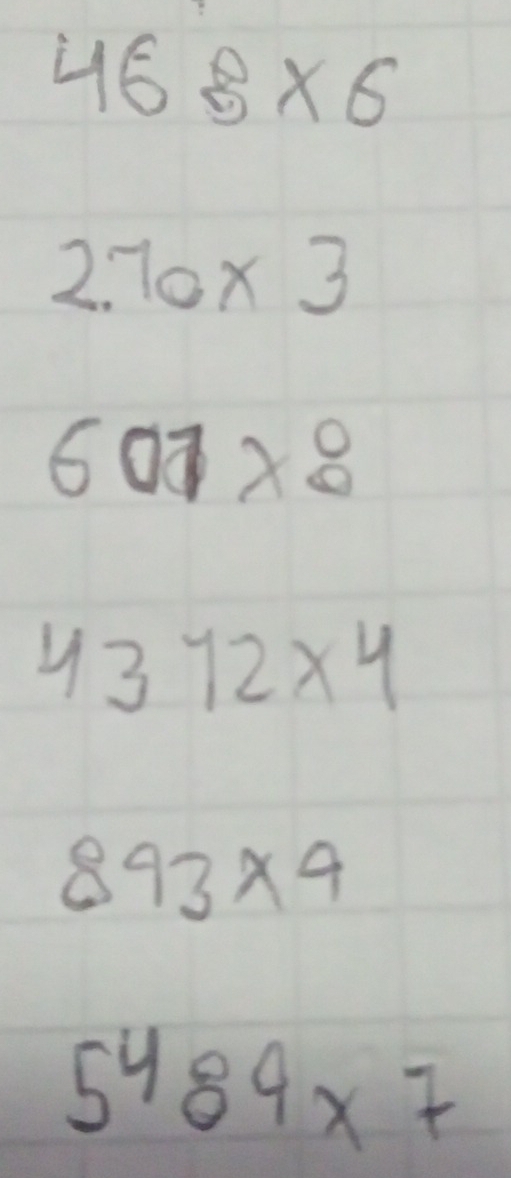 468 x 6
2.10 x 3
601 x 8
4312 x 4
893 x 9
5489 x 7